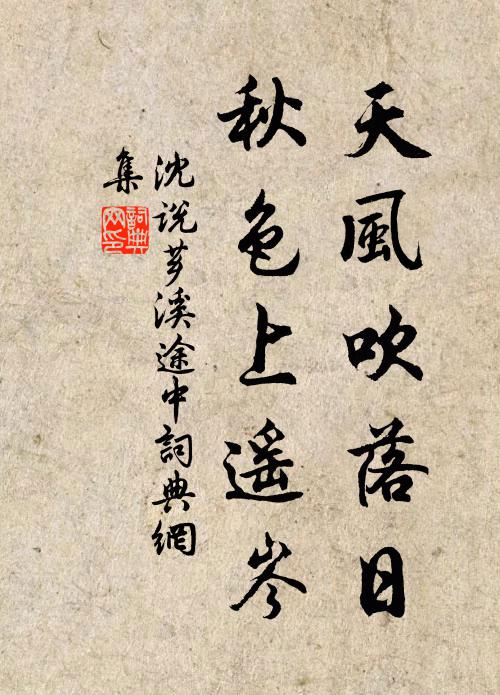 天風吹落日
秋色上遥岑
沈说梦溪途中詞典網
集
詞典
网印